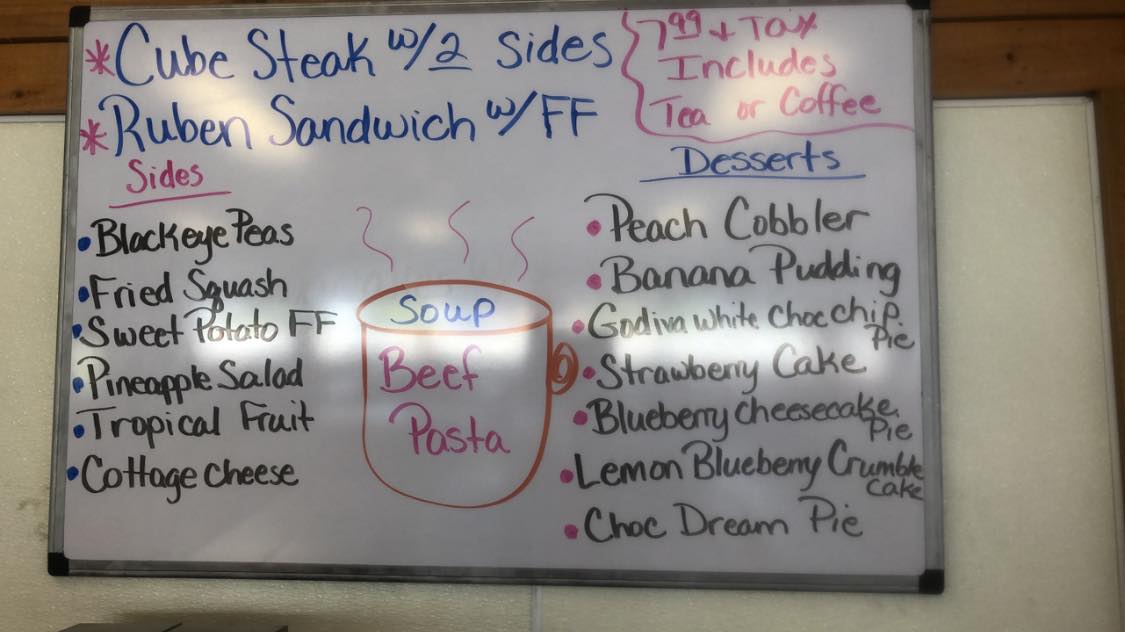 *Cube Steak w/2 Sides
*Ruben Sandwich w/FF
7.99 + Tax
Includes
Tea or Coffee
Sides
• Blackeye Peas
• Fried Squash
• Sweet Potato FF
• Pineapple Salad
• Tropical Fruit
• Cottage cheese
Soup
Beef
Pasta
Desserts
• Peach Cobbler
• Banana Pudding
• Godiva white choc chip
Pie
• Strawberry Cake
• Blueberry cheesecake
Pie
• Lemon Blueberry Crumble
cake
• Choc Dream Pie